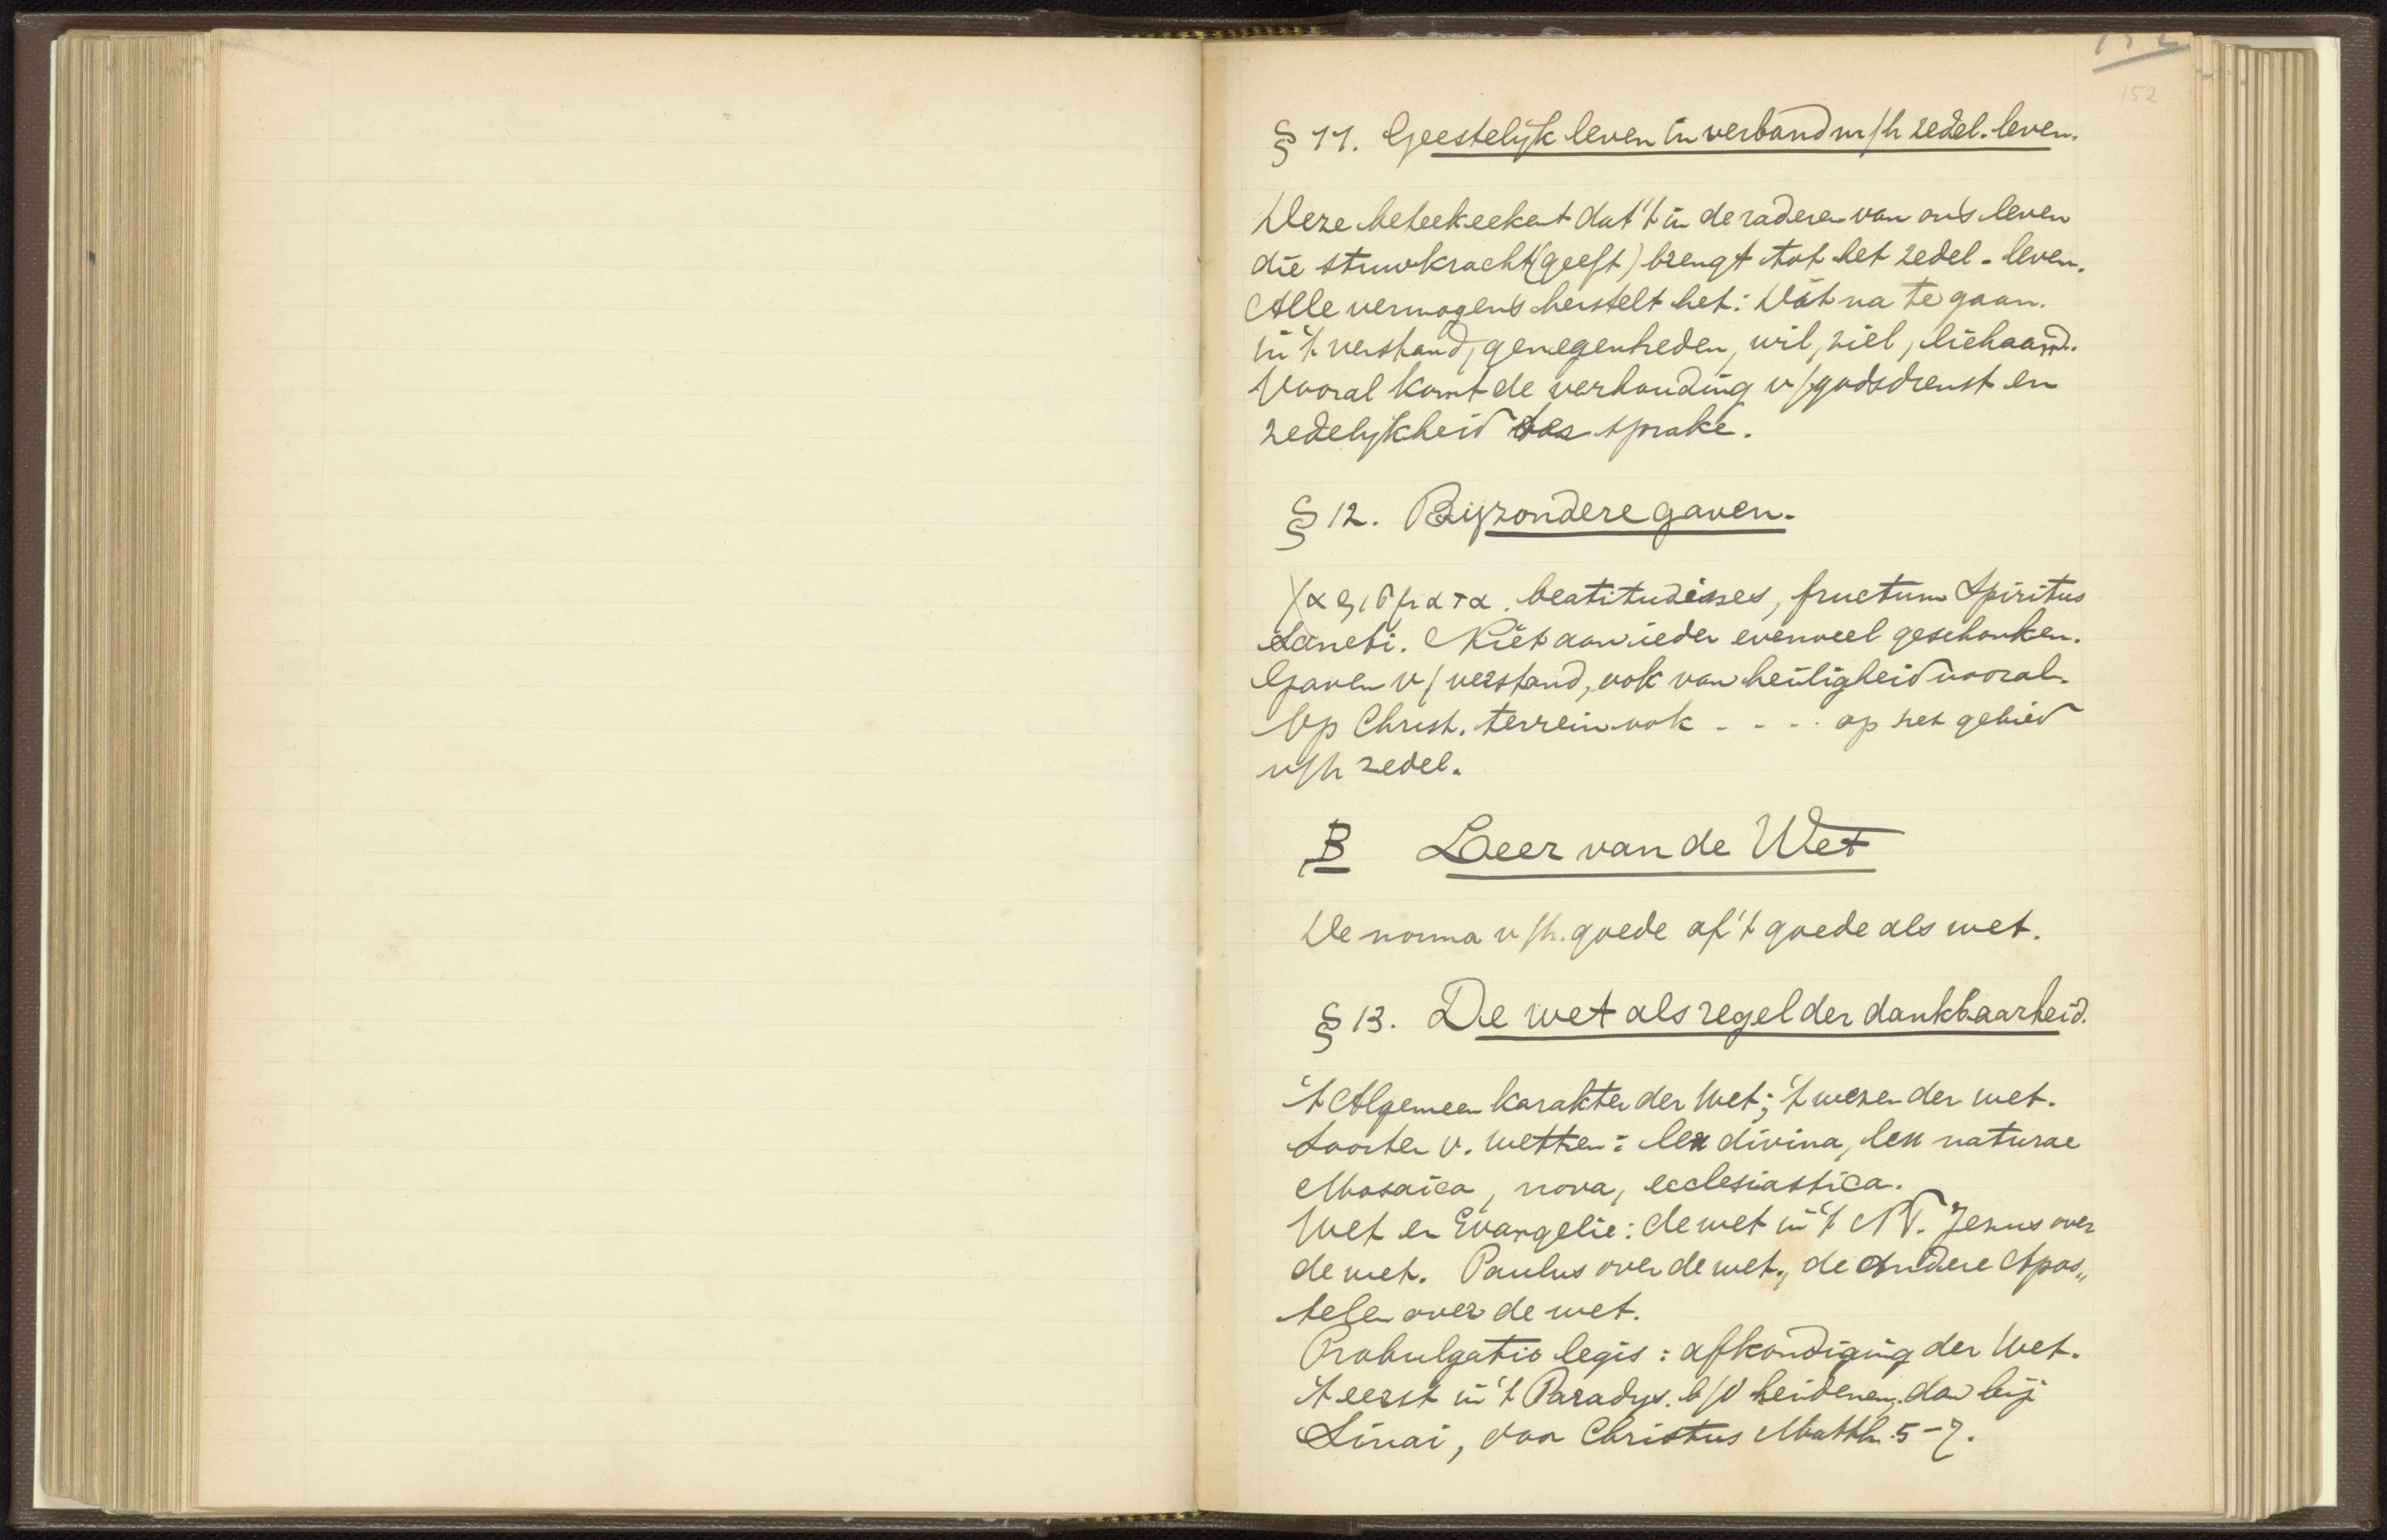 152
§ 11. Geestelijk leven in verband m/h zedel. leven.
Deze beteekeekent dat 't in de raderen van ons leven
die stuwkracht (geeft) brengt tot het zedel. leven.
Alle vermogens herstelt het: Dát na te gaan.
in 't verstand, genegenheden, wil, ziel, lichaam.
Vooral komt de verhouding v/godsdienst en
zedelijkheid ter sprake.
§ 12. Bijzondere gaven.
Χαρισματα. beatitudines, fructum Spiritus
Sancti. Niet aan ieder evenveel geschonken.
Gaven v/verstand, ook van heiligheid vooral.
Op Christ. terrein ook - - - - op het gebied
v/h zedel.
B Leer van de Wet
De norma v/h. goede of 't goede als wet.
§ 13. De wet als regel der dankbaarheid.
't Algemeen karakter der Wet; 't wezen der wet.
Soorten v. wetten: lex divina, lex naturae
Mosaica, nova, ecclesiastica.
Wet en Evangelie: de wet in 't NT. Jezus over
de wet. Paulus over de wet, de andere Apos„
telen over de wet.
Probulgatio legis: afkondiging der Wet.
't eerst in 't Paradijs. b/d heidenen, dan bij
Sinai, door Christus Matth. 5-7.